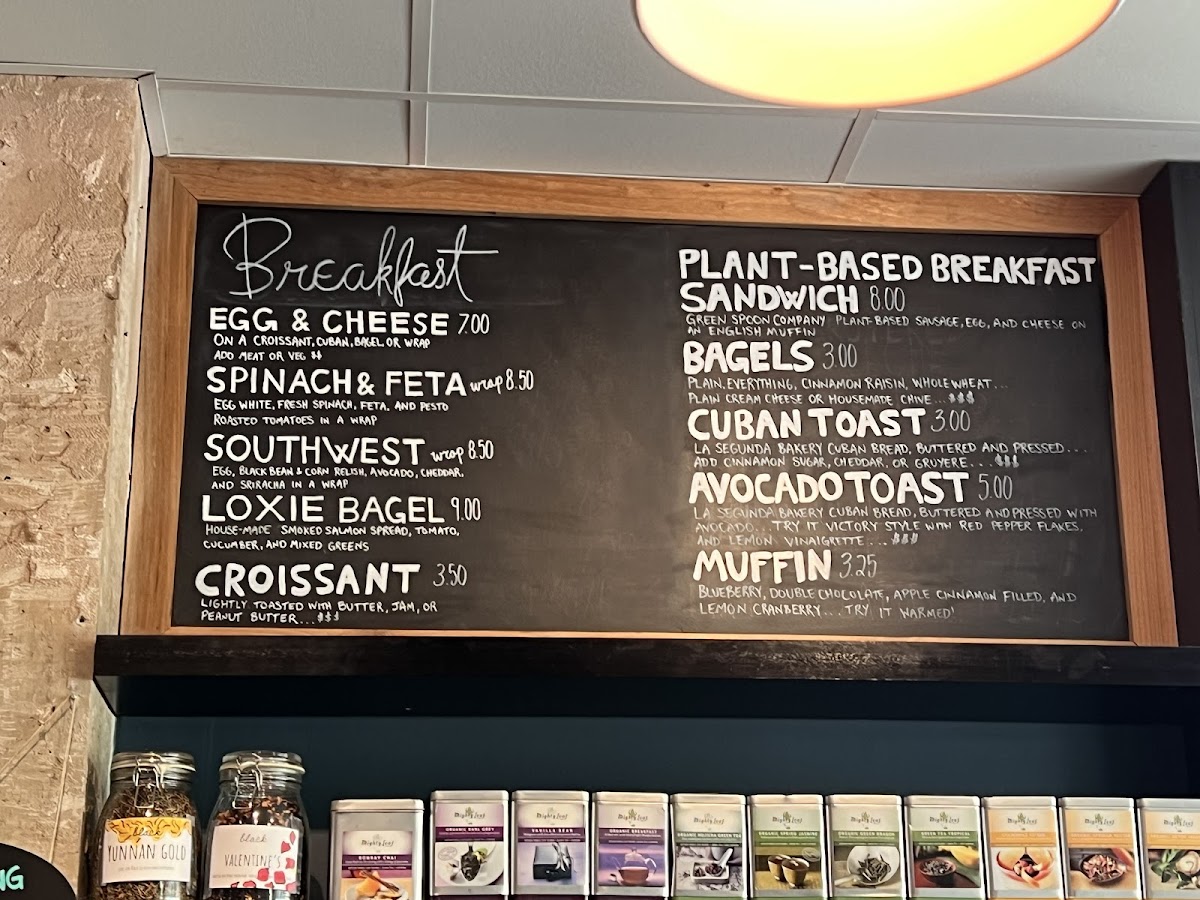 Breakfast
EGG & CHEESE 7.00
ON A CROISSANT, CUBAN, BAGEL, OR WRAP
ADD MEAT OR VEG $$
SPINACH & FETA wrap 8.50
EGG WHITE, FRESH SPINACH, FETA, AND PESTO
ROASTED TOMATOES IN A WRAP
SOUTHWEST wrap 8.50
EGG, BLACK BEAN & CORN RELISH, AVOCADO, CHEDDAR,
AND SRIRACHA IN A WRAP
LOXIE BAGEL 9.00
HOUSE-MADE SMOKED SALMON SPREAD, TOMATO,
CUCUMBER, AND MIXED GREENS
CROISSANT 3.50
LIGHTLY TOASTED WITH BUTTER, JAM, OR
PEANUT BUTTER...$$$
PLANT-BASED BREAKFAST
SANDWICH 8.00
GREEN SPOON COMPANY PLANT-BASED SAUSAGE, EGG, AND CHEESE ON
AN ENGLISH MUFFIN
BAGELS 3.00
PLAIN, EVERYTHING, CINNAMON RAISIN, WHOLE WHEAT...
PLAIN CREAM CHEESE OR HOUSEMADE CHIVE...$$$
CUBAN TOAST 3.00
LA SEGUNDA BAKERY CUBAN BREAD, BUTTERED AND PRESSED...
ADD CINNAMON SUGAR, CHEDDAR, OR GRUYERE...$$$
AVOCADO TOAST 5.00
LA SEGUNDA BAKERY CUBAN BREAD, BUTTERED AND PRESSED WITH
AVOCADO...TRY IT VICTORY STYLE WITH RED PEPPER FLAKES,
AND LEMON VINAIGRETTE...$$$
MUFFIN 3.25
BLUEBERRY, DOUBLE CHOCOLATE, APPLE CINNAMON FILLED, AND
LEMON CRANBERRY...TRY IT WARMED!
NG
YUNNAN GOLD
black
VALENTINE'S
BOMBAY CHAI
Mighty Leaf
ORGANIC EARL GREY
Mighty Leaf
VANILLA BEAN
Mighty Leaf
ORGANIC BREAKFAST
Mighty Leaf
Mighty Leaf
ORGANIC SPRING JASMINE
Mighty Leaf
ORGANIC GREEN DRAGON
Mighty Leaf
GREEN TEA TROPICAL
Mighty Leaf
Mighty Leaf
Mighty Leaf